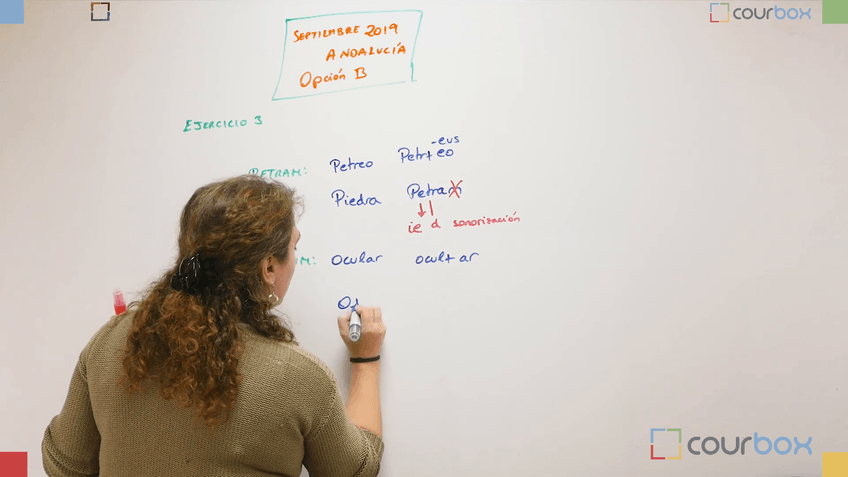 courbox
SEPTIEMBRE 2019
ANDALUCÍA
Opción B
EJERCICIO 3
-eus
PETRAM: Petreo Petr+eo
Piedra Petram
ie d sonorización
Ocular ocul+ar
courbox